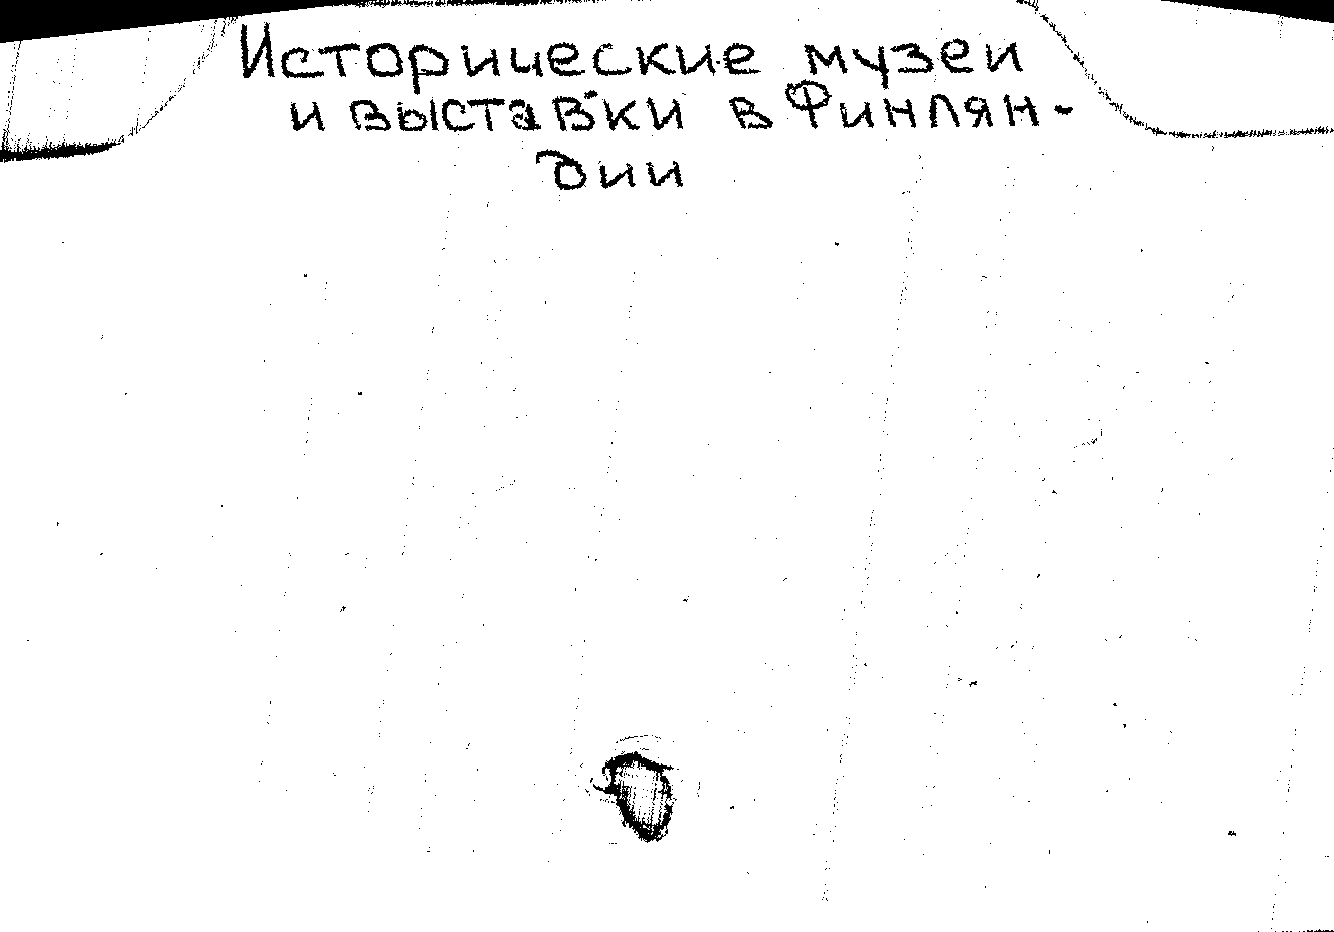 Исторические музеи
и выставки в Финлян-
дии